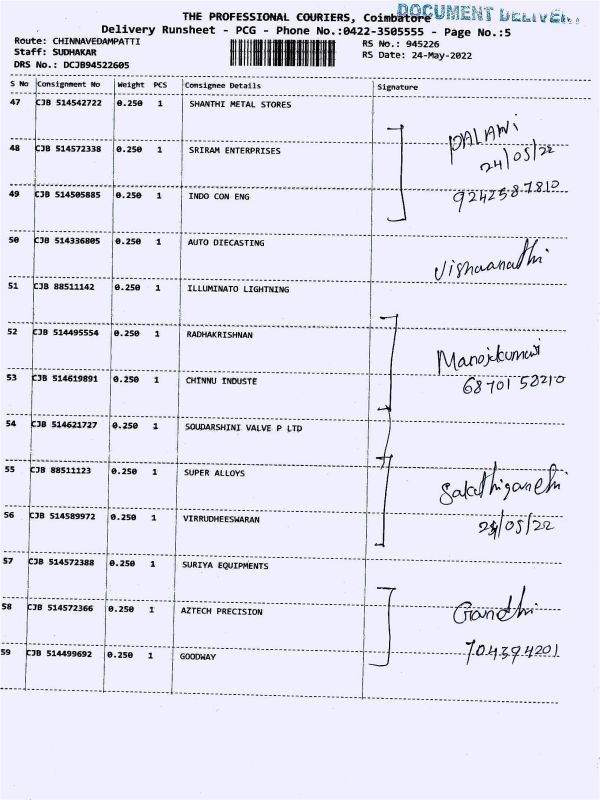 THE PROFESSIONAL COURIERS, Coimbatore
DOCUMENT DELIVERY
Delivery Runsheet - PCG - Phone No.:0422-3505555 - Page No.:5
Route: CHINNAVEDAMPATTI RS No.: 945226
Staff: SUDHAKAR RS Date: 24-May-2022
DRS No.: DCJB94522605
S No Consignment No Weight PCS Consignee Details Signature
47 CJB 514542722 0.250 1 SHANTHI METAL STORES
PALANI
48 CJB 514572338 0.250 1 SRIRAM ENTERPRISES
24/05/22
49 CJB 514505885 0.250 1 INDO CON ENG 9242587810
50 CJB 514336805 0.250 1 AUTO DIECASTING
51 CJB 88511142 0.250 1 ILLUMINATO LIGHTNING
52 CJB 514495554 0.250 1 RADHAKRISHNAN
Manojkumar
53 CJB 514619891 0.250 1 CHINNU INDUSTE 68701 58210
54 CJB 514621727 0.250 1 SOUDARSHINI VALVE P LTD
55 CJB 88511123 0.250 1 SUPER ALLOYS
56 CJB 514589972 0.250 1 VIRRUDHEESWARAN 24/05/22
57 CJB 514572388 0.250 1 SURIYA EQUIPMENTS
58 CJB 514572366 0.250 1 AZTECH PRECISION Gandhi
59 CJB 514499692 0.250 1 GOODWAY 704394201